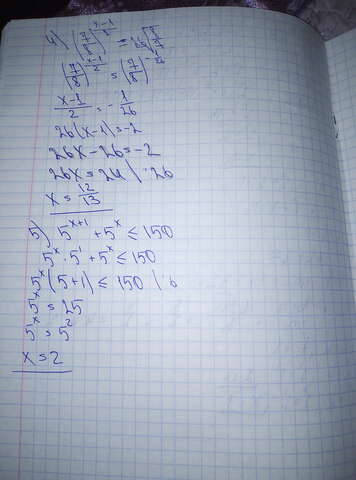 4) (7/8)^((x-1)/2) =
(7/8)^((x-1)/2) = (7/8)^(-1/26)
(x-1)/2 = -1/26
26(x-1) = -2
26x - 26 = -2
26x = 24 | :26
x = 12/13
5) 5^(x+1) + 5^x ≤ 150
5^x · 5^1 + 5^x ≤ 150
5^x (5+1) ≤ 150 | :6
5^x = 25
5^x = 5^2
x = 2